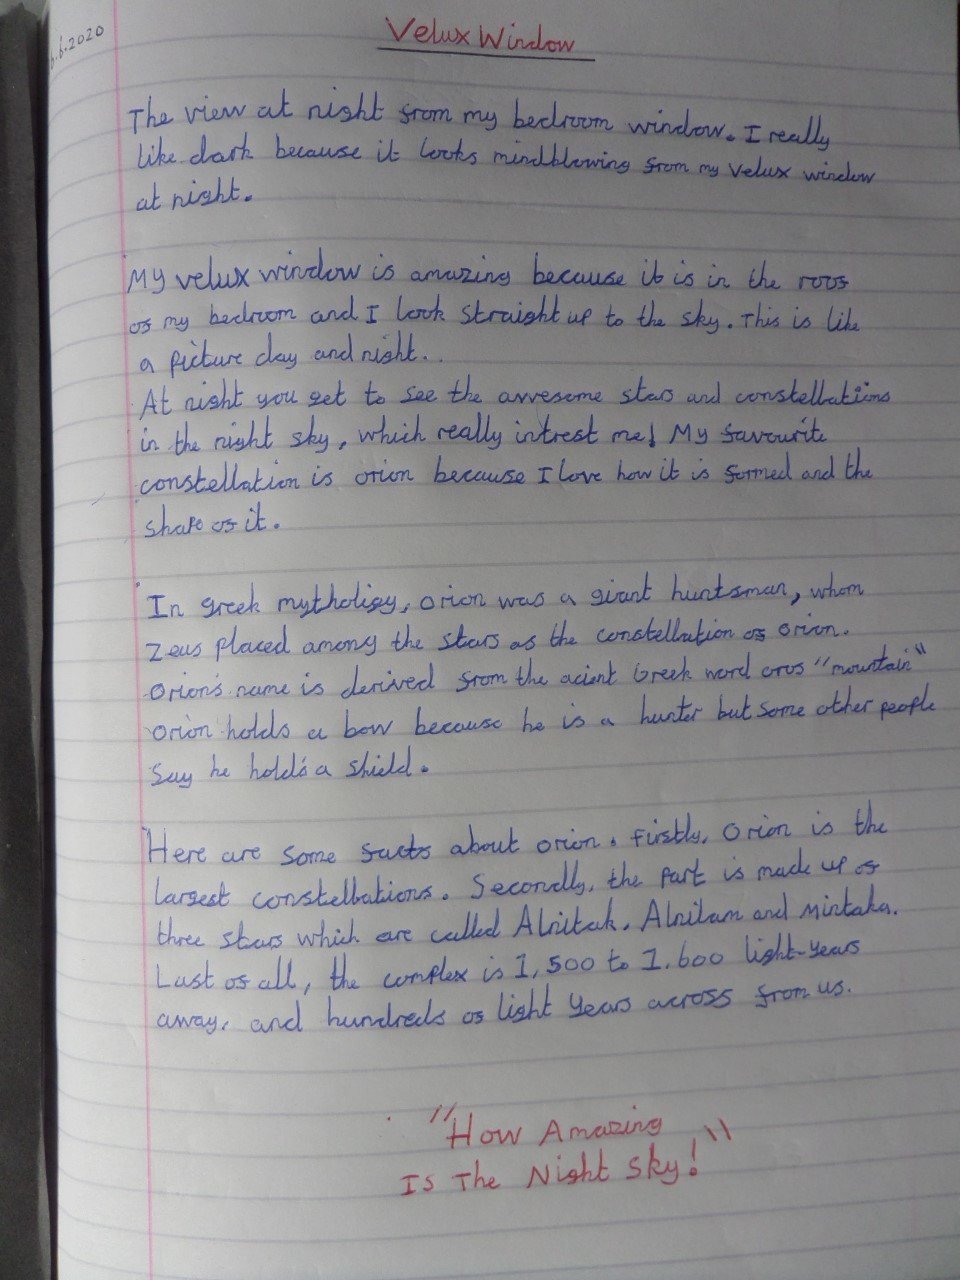 6.6.2020
Velux Window
The view at night from my bedroom window. I really
like dark because it looks mindblowing from my velux window
at night.
My velux window is amazing because it is in the roof
of my bedroom and I look straight up to the sky. This is like
a picture day and night..
At night you get to see the awesome stars and constellations
in the night sky, which really intrest me! My favourite
constellation is orion because I love how it is formed and the
shape of it.
In greek mytholigy, orion was a giant huntsman, whom
Zeus placed among the stars as the constellation of orion.
Orion's name is derived from the acient Greek word oros "mountain"
Orion holds a bow because he is a hunter but some other people
say he holds a shield.
Here are some facts about orion. Firstly, Orion is the
largest constellations. Secondly, the part is made up of
three stars which are called Alnitak, Alnilam and Mintaka.
Last of all, the complex is 1,500 to 1,600 light-years
away, and hundreds of light years across from us.
"How Amazing
Is The Night Sky!"